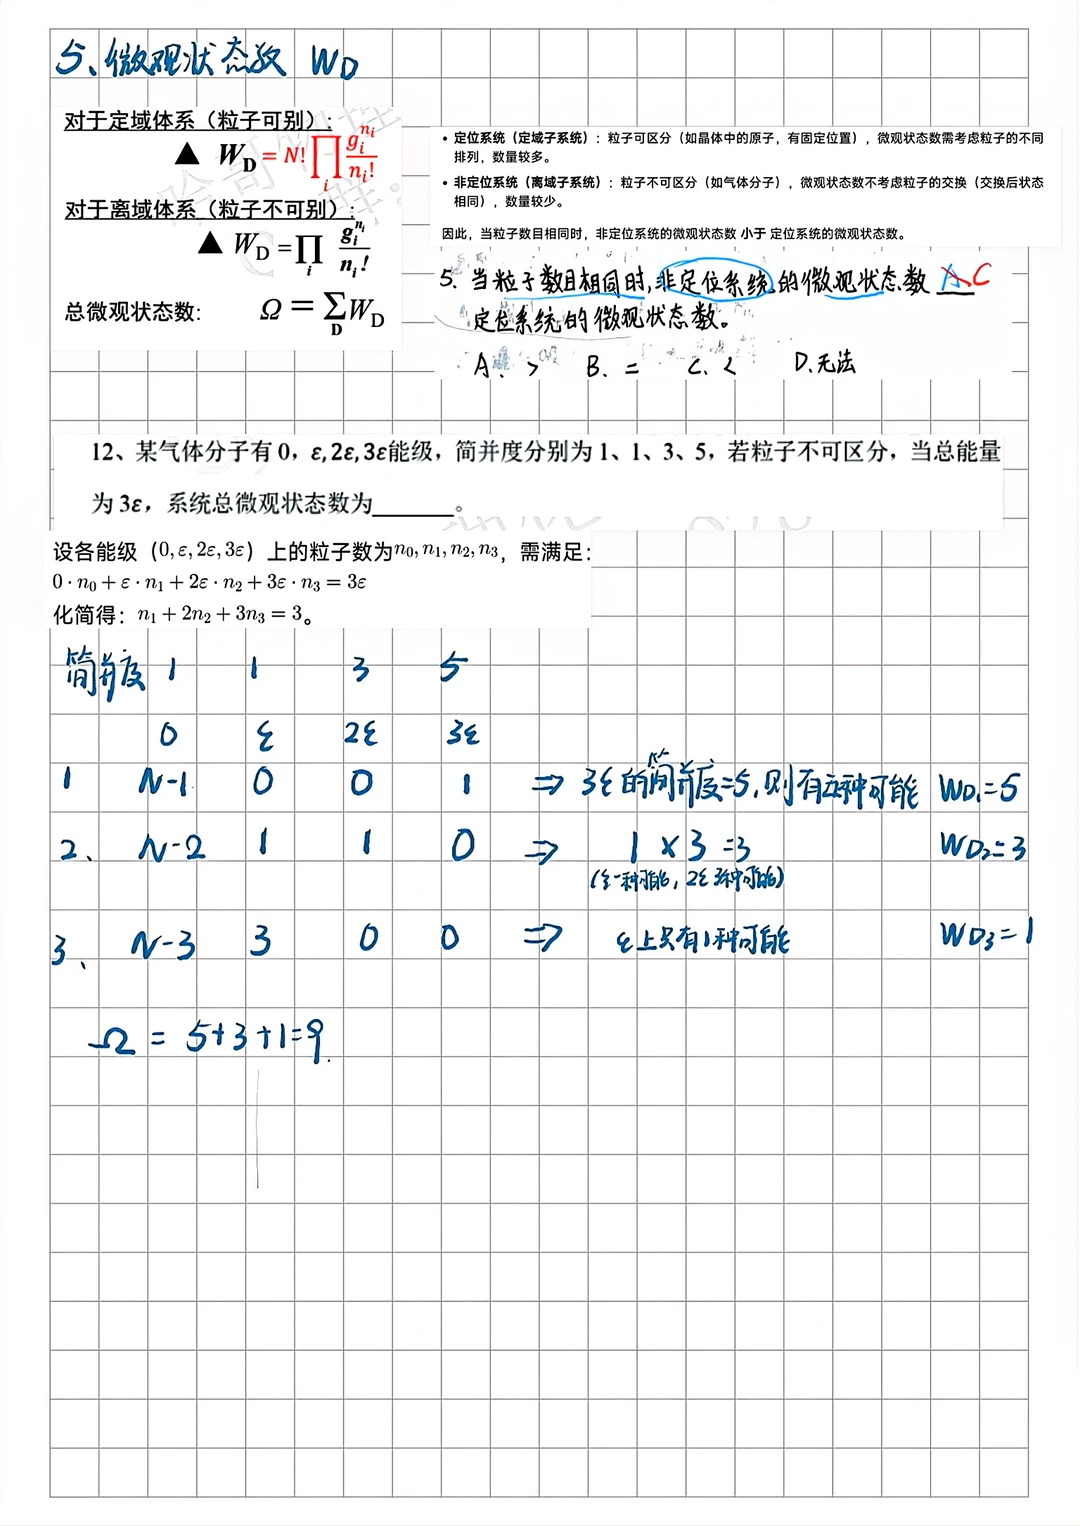 5、微观状态数 WD
对于定域体系（粒子可别）：
▲ W_D = N! ∏_i g_i^{n_i} / n_i!
对于离域体系（粒子不可别）：
▲ W_D = ∏_i g_i^{n_i} / n_i!
总微观状态数: Ω = ∑_D W_D
• 定位系统（定域子系统）：粒子可区分（如晶体中的原子，有固定位置），微观状态数需考虑粒子的不同
排列，数量较多。
• 非定位系统（离域子系统）：粒子不可区分（如气体分子），微观状态数不考虑粒子的交换（交换后状态
相同），数量较少。
因此，当粒子数目相同时，非定位系统的微观状态数 小于 定位系统的微观状态数。
5. 当粒子数目相同时,非定位系统的微观状态数 A C
定位系统的微观状态数。
A. > B. = C. < D.无法
12、某气体分子有 0，ε, 2ε, 3ε能级，简并度分别为 1、1、3、5，若粒子不可区分，当总能量
为 3ε，系统总微观状态数为______。
设各能级（0, ε, 2ε, 3ε）上的粒子数为n₀, n₁, n₂, n₃，需满足：
0 · n₀ + ε · n₁ + 2ε · n₂ + 3ε · n₃ = 3ε
化简得：n₁ + 2n₂ + 3n₃ = 3。
简并度 1 1 3 5
0 ε 2ε 3ε
1 N-1 0 0 1 ⇒ 3ε的简并度=5,则有5种可能 WD₁=5
2、 N-2 1 1 0 ⇒ 1 × 3 =3 WD₂=3
(ε一种可能，2ε 3种可能)
3、 N-3 3 0 0 ⇒ ε上只有1种可能 WD₃=1
Ω = 5+3+1=9.